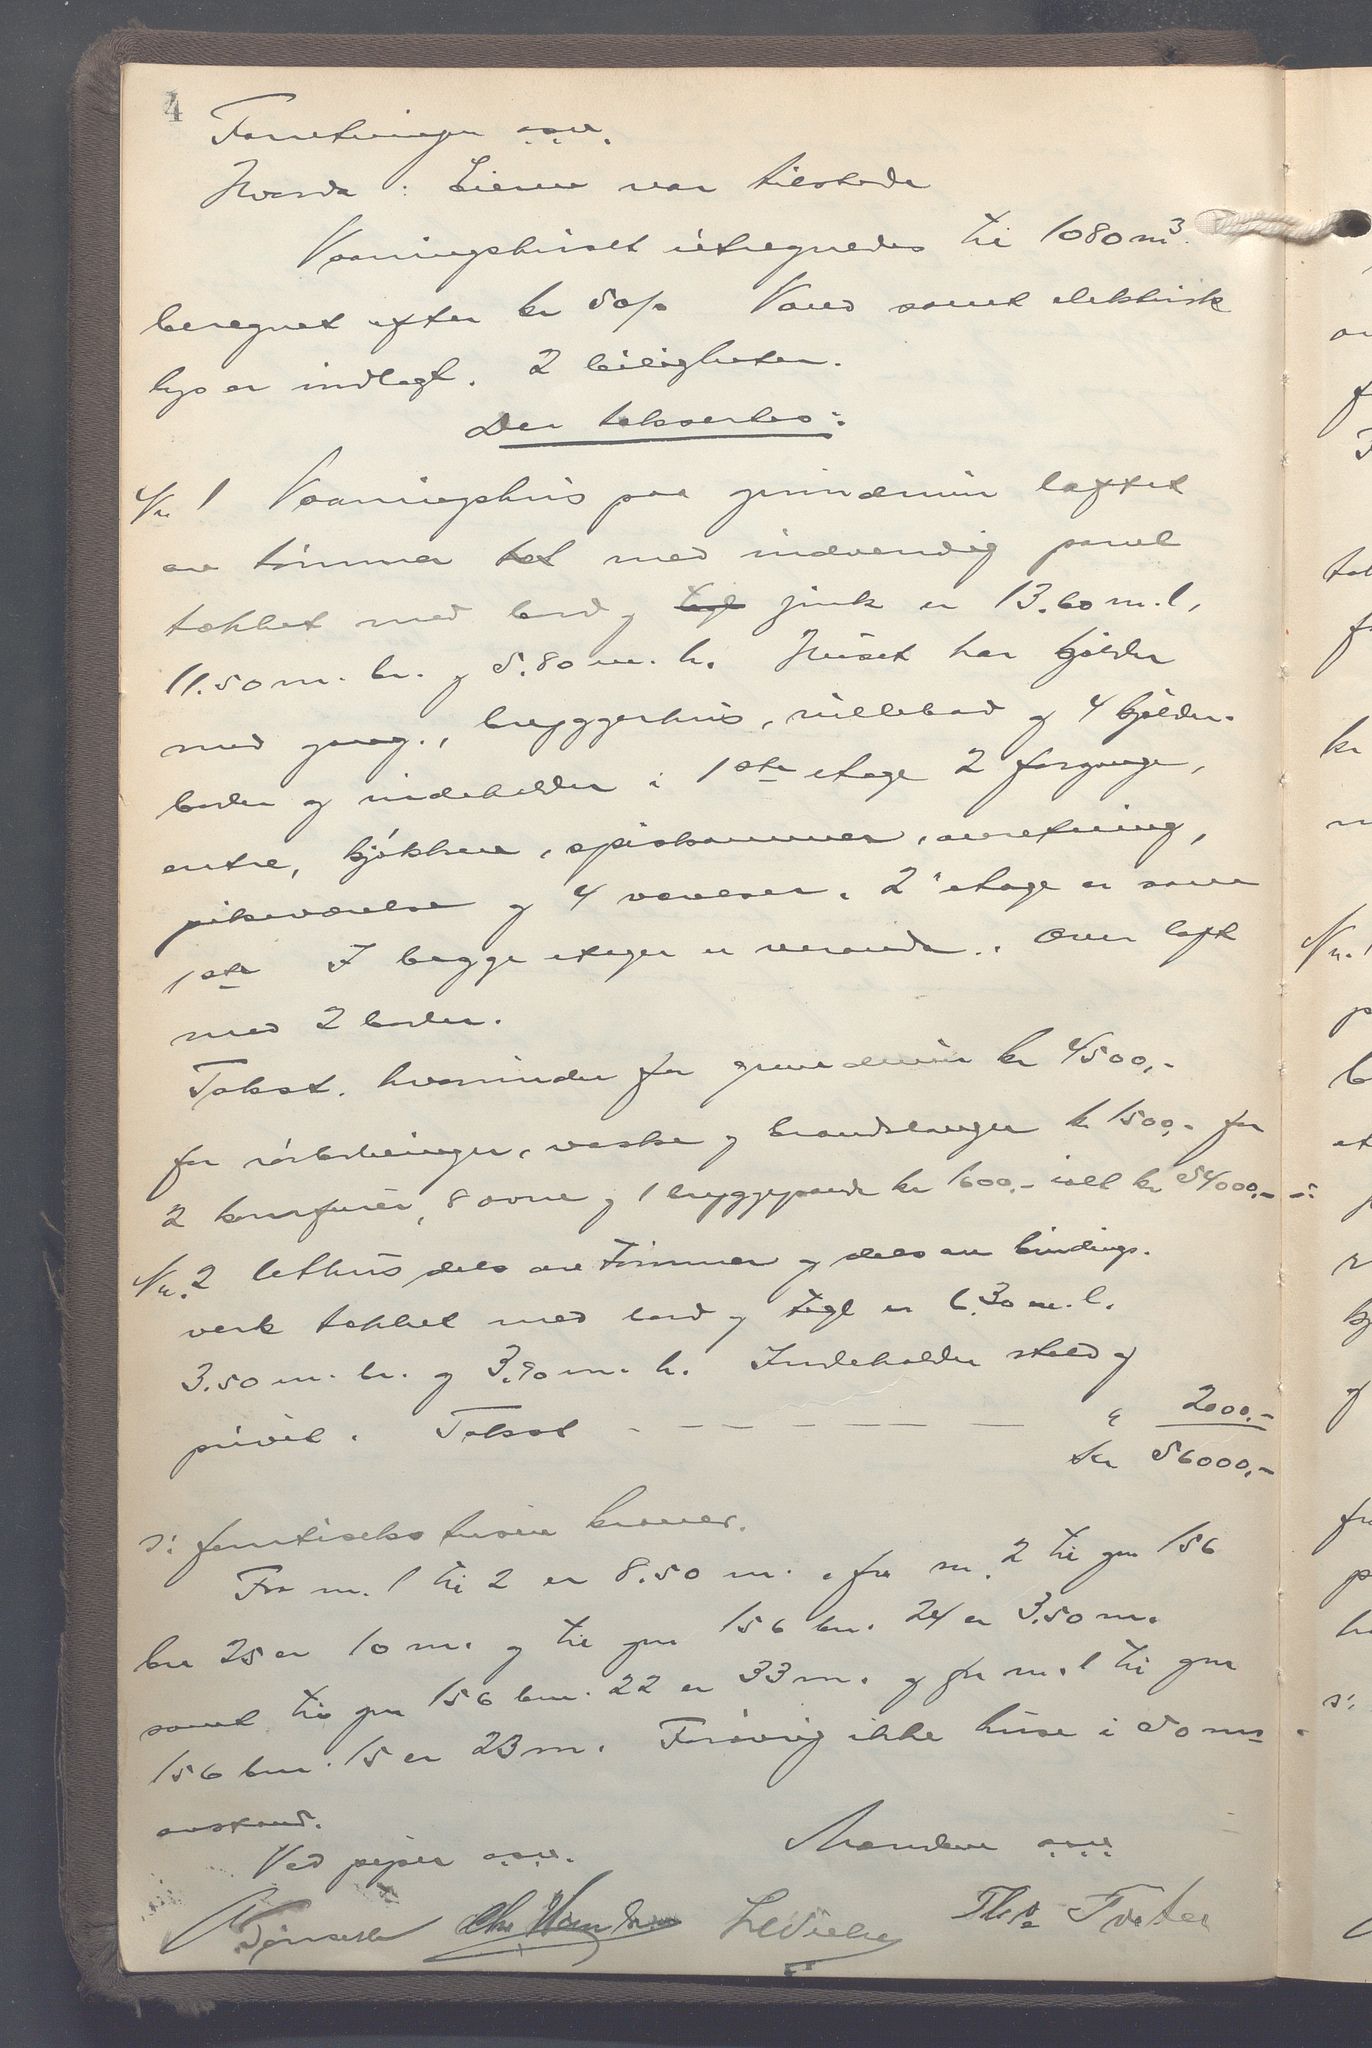 4
Forretningen o.s.v.
Hvorda : Eieren var tilstede
Vaaningshuset utregnedes til 1080 m³.
beregnet efter kr 50/o Vand samt elektrisk
lys er indlagt. 2 leiligheter.
Der takseertes:
Nr. 1 Vaaningshus paa grundmur laftet
av tømmer tet med indvendig panel
tækket med bord og tegl zink er 13.60 m. l,
11.50 m. br. og 5.80 m. h. Huset har kjelder
med gang., bryggerhus, rullebod og 4 kjelder-
boder og indeholder i 1ste etage 2 forgange,
entre, kjøkken, spiskammer, anretning,
pikeværelse og 4 værelser. 2 etage er som
1ste I begge etager er veranda. Over loft
med 2 boder.
Takst. hvorunder for grundmur kr 4500,-
for rørledninger, vaske og brandslanger kr 1500,- for
2 komfurer, 8 ovne og 1 bryggepande kr 1600,- ialt kr 54000,-
Nr. 2 Uthus dels av tømmer og dels av bindings-
verk tækket med bord og tegl er 6.30 m. l.
3.50 m. br. og 3.90 m. h. Indeholder stald og
privet. Takst - — — — — — " 2000,-
kr 56000,-
s: femtiseks tusen kroner.
Fra nr. 1 til 2 er 8.50 m., fra nr. 2 til gnr 156
bnr 25 er 10 m. og til gnr 156 bnr. 24 er 3.50 m.
samt til gnr 156 bnr. 22 er 33 m. og fra nr. 1 til gnr
156 bnr. 15 er 23 m. Forøvrig ikke huse i 50 ms
avstand.
Ved piper o.s.v. Mændene o.s.v.